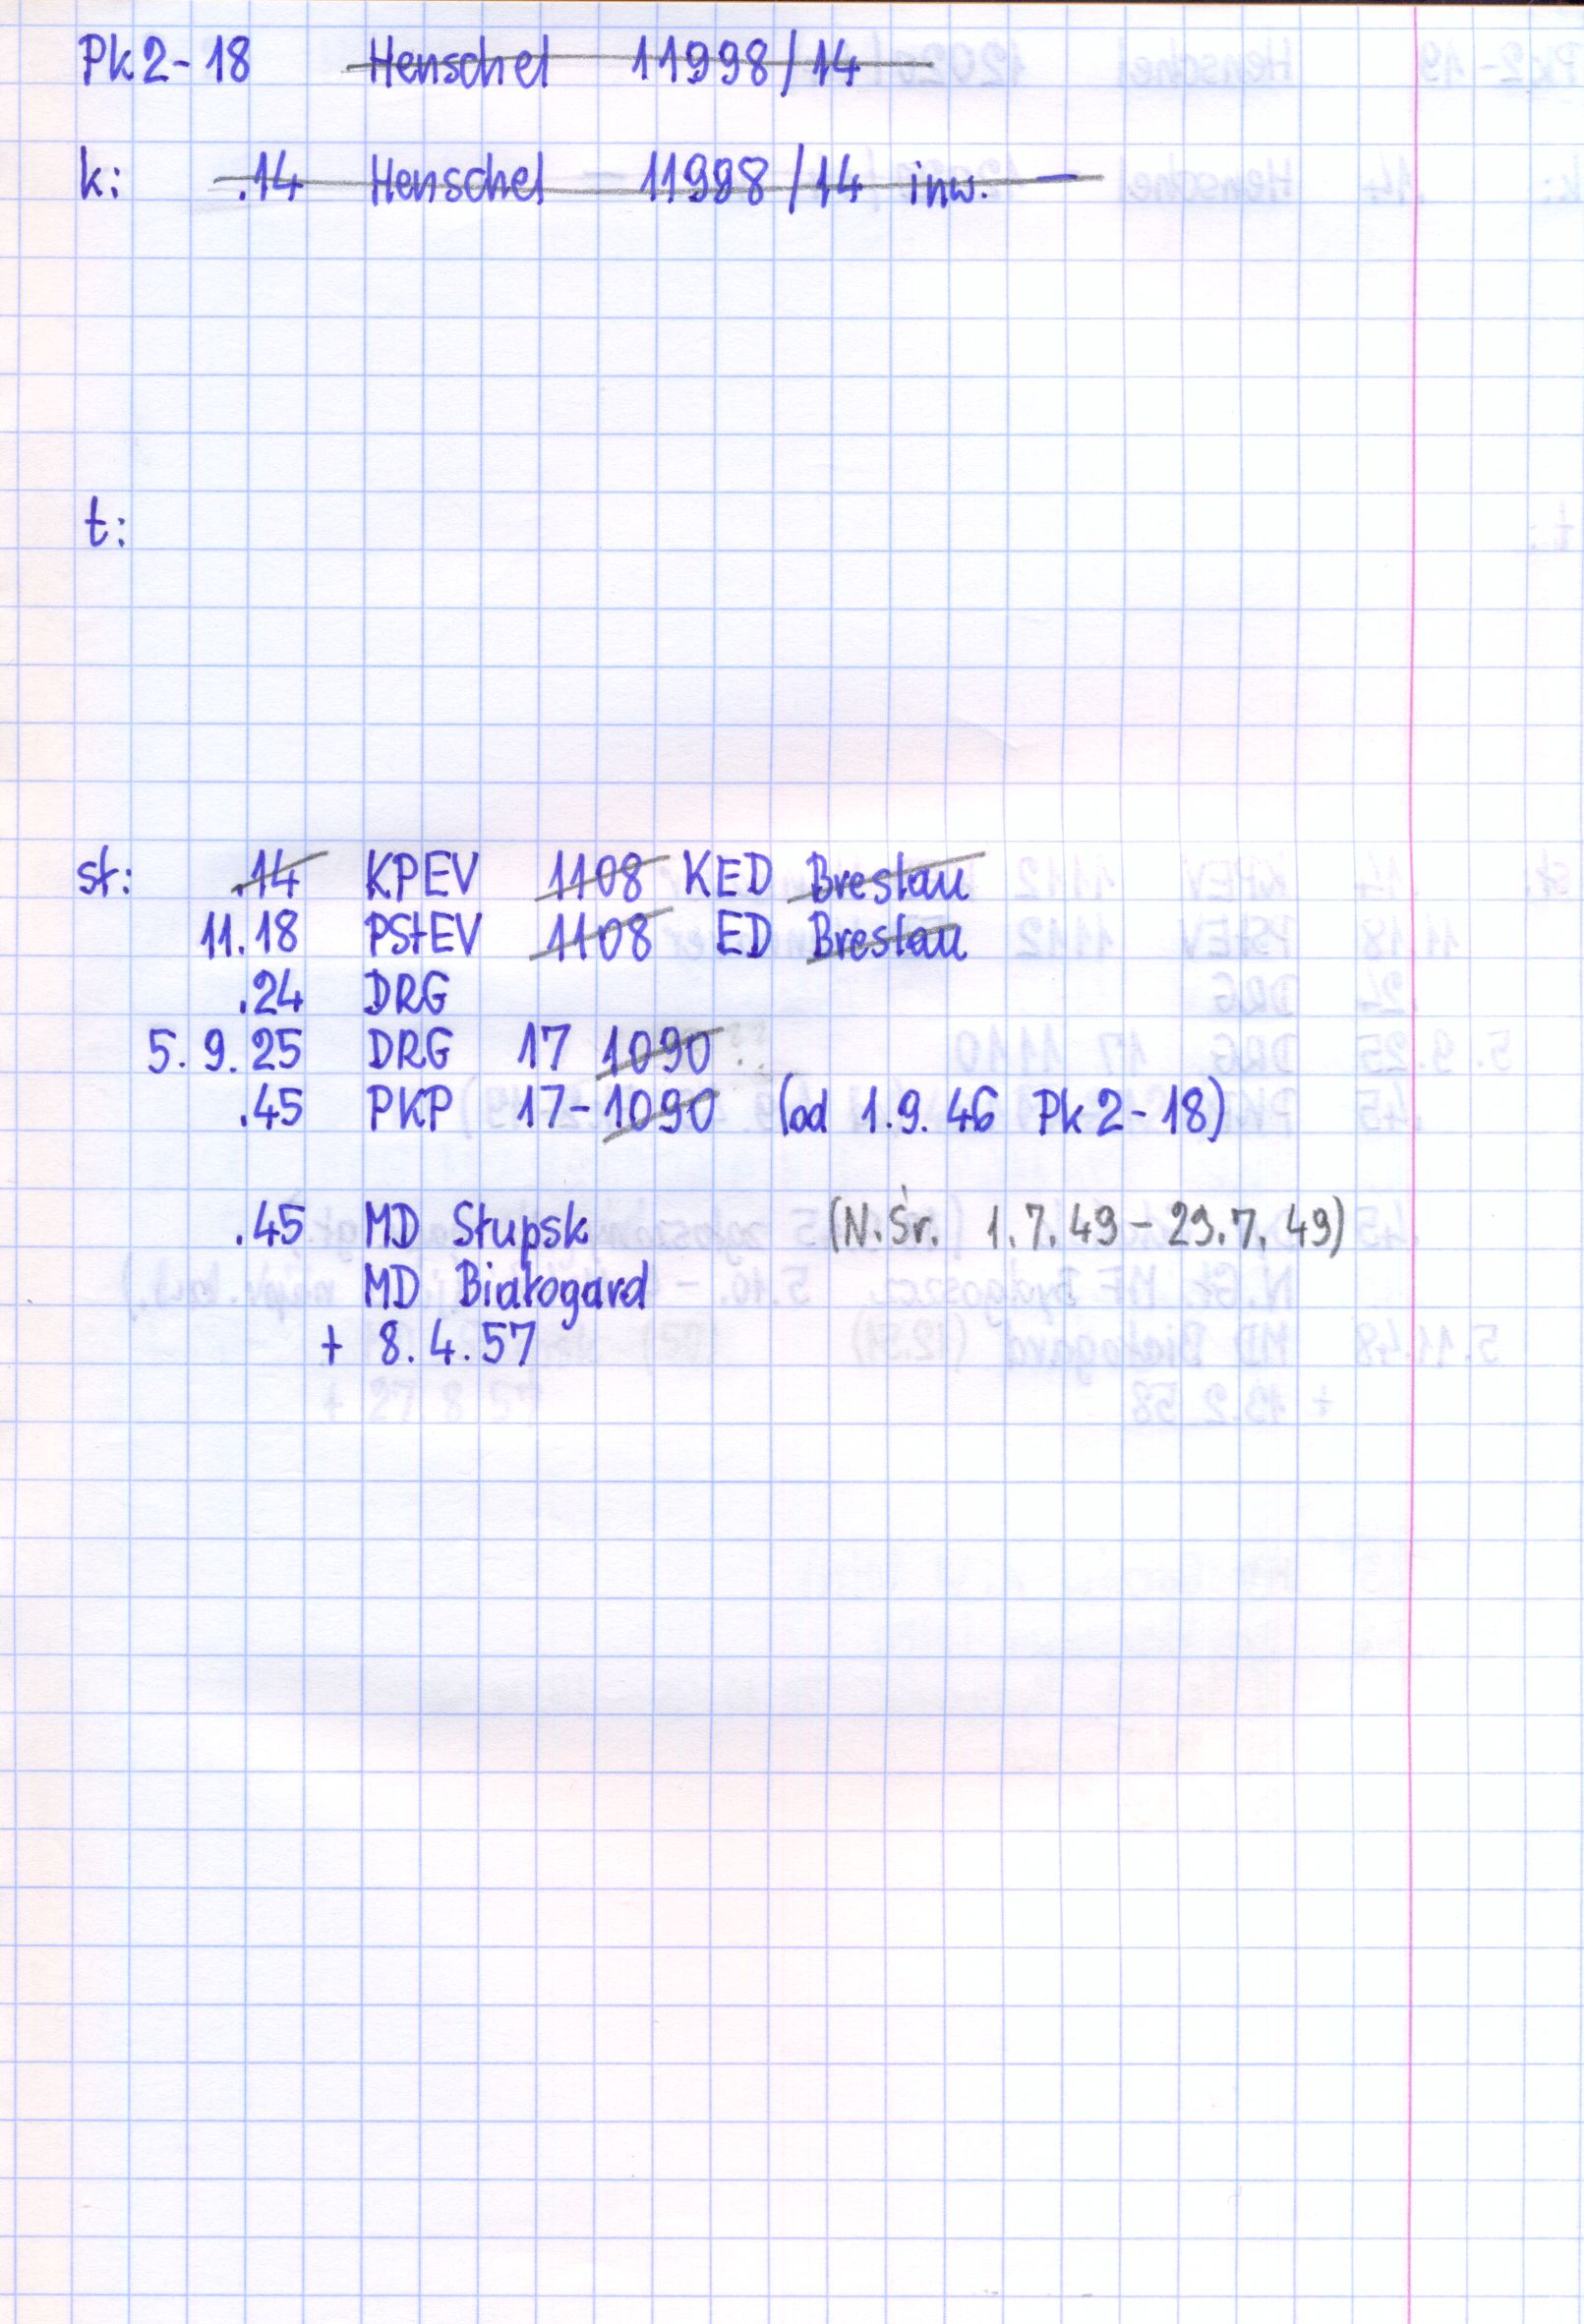 Pk2-18 Henschel 11998/14
k: .14 Henschel - 11998/14 inw. -
t:
st: .14 KPEV 1108 KED Breslau
11.18 PStEV 1108 ED Breslau
.24 DRG
5.9.25 DRG 17 1090
.45 PKP 17-1090 (od 1.9.46 Pk2-18)
.45 MD Słupsk (N.Śr. 1.7.49 - 29.7.49)
MD Białogard
+ 8.4.57